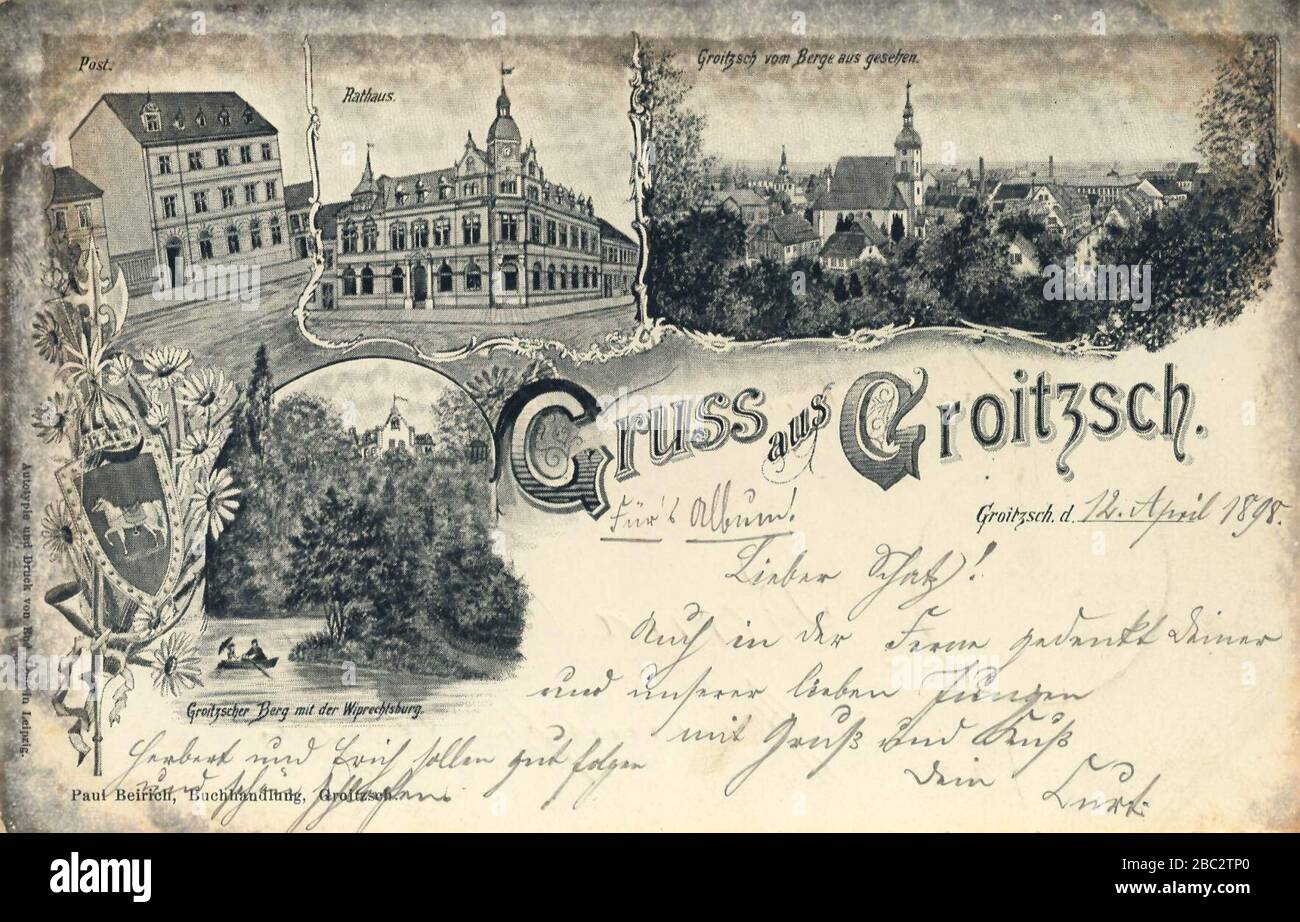 Post.
Rathaus.
Groitzsch vom Berge aus gesehen.
Gruss aus Groitzsch.
Für's Album!
Groitzsch. d. 12. April 1898.
Lieber Schatz!
Auch in der Ferne gedenkt Deiner
und unserer lieben Jungen
mit Gruß und Kuß
Dein Curt.
Groitzscher Berg mit der Wiprechtsburg.
Herbert und Erich sollen gut folgen
und schön schlafen.
Paul Beirich, Buchhandlung, Groitzsch.
Autotypie und Druck von in Leipzig.
alamy
alamy
Image ID: 2BC2TP0
www.alamy.com